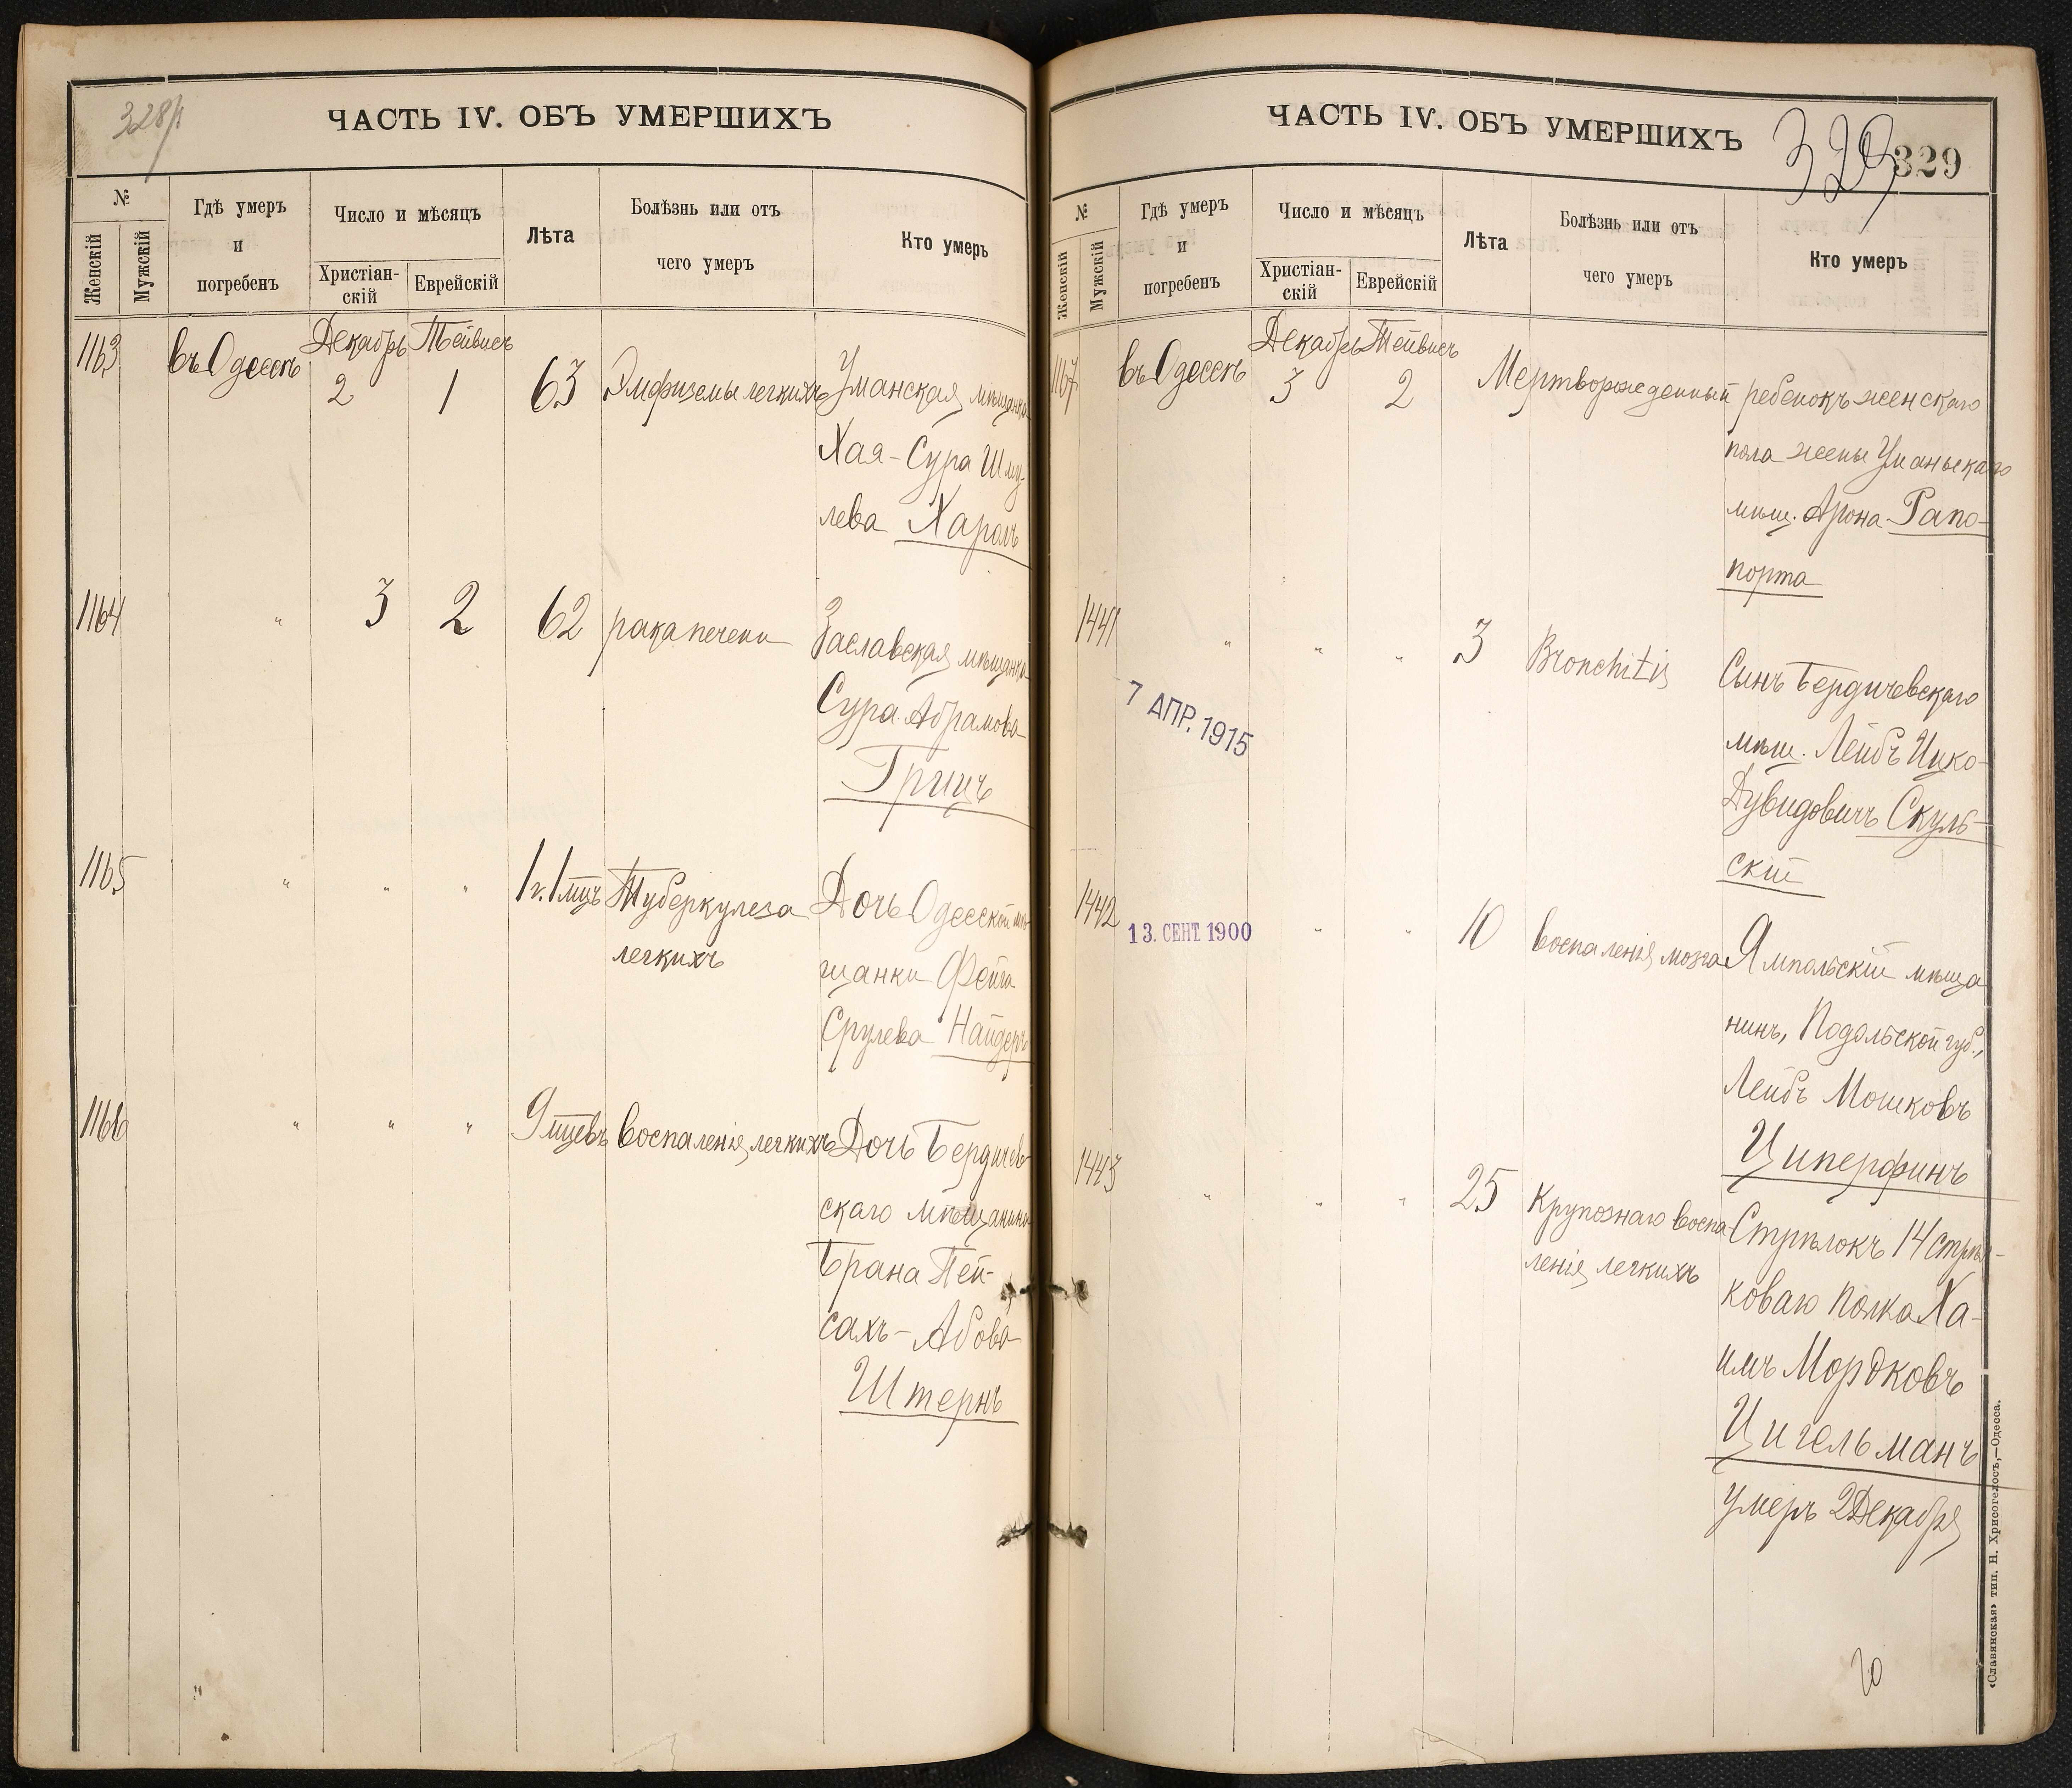 328/1
ЧАСТЬ IV. ОБЪ УМЕРШИХЪ
№
Женскій
Мужскій
Гдѣ умеръ
и
погребенъ
Число и мѣсяцъ
Христіан-
скій
Еврейскій
Лѣта
Болѣзнь или отъ
чего умеръ
Кто умеръ
1163 въ Одессѣ Декабрь 2 Тейвисъ 1 63 Эмфиземы легкихъ Уманская мѣщанка
Хая-Сура Шму-
лева Харолъ
1164 " 3 2 62 рака печени Заславская мѣщанка
Сура Абрамова
Грицъ
1165 " " " 1 г. 1 мцъ Туберкулеза Дочь Одесской мѣ-
легкихъ щанки Фейга
Срулева Найдеръ
1166 " " " 9 мцевъ воспаленія легкихъ Дочь Бердичев-
скаго мѣщанина
Брана Пей-
сахъ-Абова
Штернъ
ЧАСТЬ IV. ОБЪ УМЕРШИХЪ
329
329
№
Женскій
Мужскій
Гдѣ умеръ
и
погребенъ
Число и мѣсяцъ
Христіан-
скій
Еврейскій
Лѣта
Болѣзнь или отъ
чего умеръ
Кто умеръ
1167 въ Одессѣ Декабрь 3 Тейвисъ 2 Мертворожденный ребенокъ женскаго
пола жены Уманьскаго
мѣщ. Арона Рапо-
порта
1441 " " " 3 Bronchitis Сынъ Бердичевскаго
7 АПР. 1915
мѣщ. Лейбъ Ицко-
Дувидовичъ Скуль-
скій
1442 13. СЕНТ. 1900 " " 10 воспаленія мозга Ямпольскій мѣща
нинъ, Подольской губ.,
Лейбъ Мошковъ
Циперфинъ
1443 " " " 25 Крупознаго воспа Стрѣлокъ 14 стрѣл-
ленія легкихъ коваго полка Ха-
имъ Мордковъ
Цигельманъ
умеръ 2 Декабря
«Славянская» тип. Н. Хрисогелосъ,—Одесса.